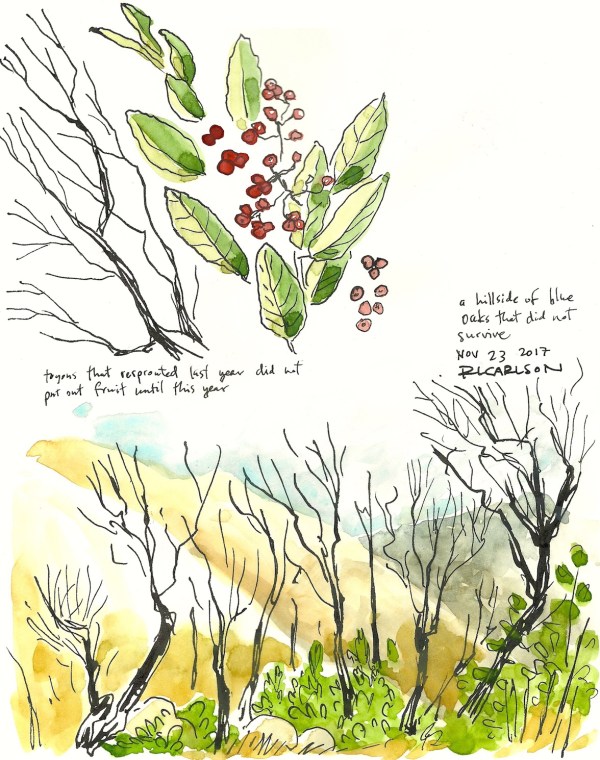 a hillside of blue
oaks that did not
survive
NOV 23 2017
R CARLSON
toyons that resprouted last year did not
put out fruit until this year